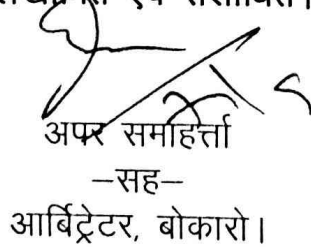 एवं
अपर समाहर्त्ता
–सह–
आर्बिट्रेटर, बोकारो।